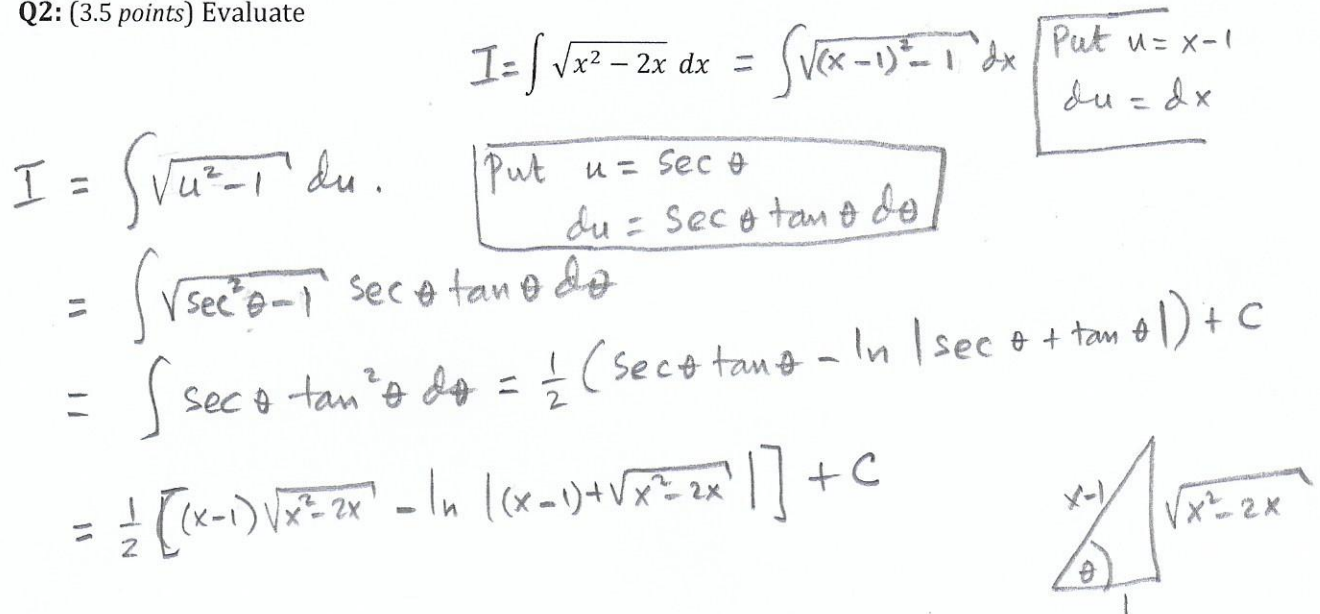 Q2: (3.5 points) Evaluate
I = ∫ √(x² − 2x) dx = ∫ √((x−1)² − 1) dx
Put u = x−1
du = dx
I = ∫ √(u² − 1) du .
Put u = sec θ
du = sec θ tan θ dθ
= ∫ √(sec² θ − 1) sec θ tan θ dθ
= ∫ sec θ tan² θ dθ = 1/2 (sec θ tan θ − ln |sec θ + tan θ|) + C
= 1/2 [(x−1) √(x² − 2x) − ln |(x−1) + √(x² − 2x)|] + C
x−1
√(x² − 2x)
θ
1